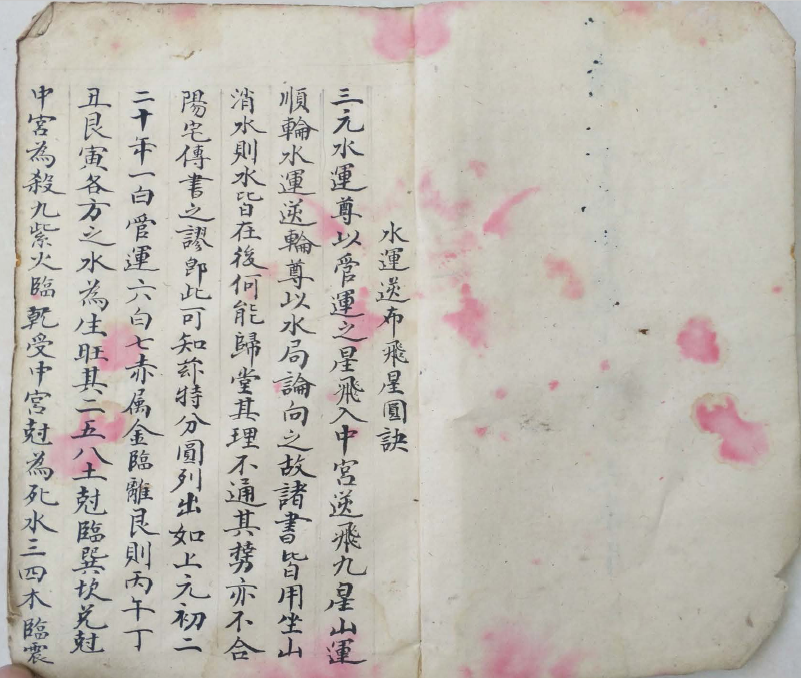 水運逆布飛星圓訣
三元水運尊以管運之星飛入中宮逆飛九星山運
順輪水運逆輪尊以水局論向之故諸書皆用坐山
消水則水皆在後何能歸堂其理不通其勢亦不合
陽宅傳書之謬卽此可知玆特分圓列出如上元初二
二十年一白管運六白七赤属金臨離艮則丙午丁
丑艮寅各方之水為生旺其二五八土尅臨巽坎兌尅
中宮為殺九紫火臨乾受中宮尅為死水三四木臨震